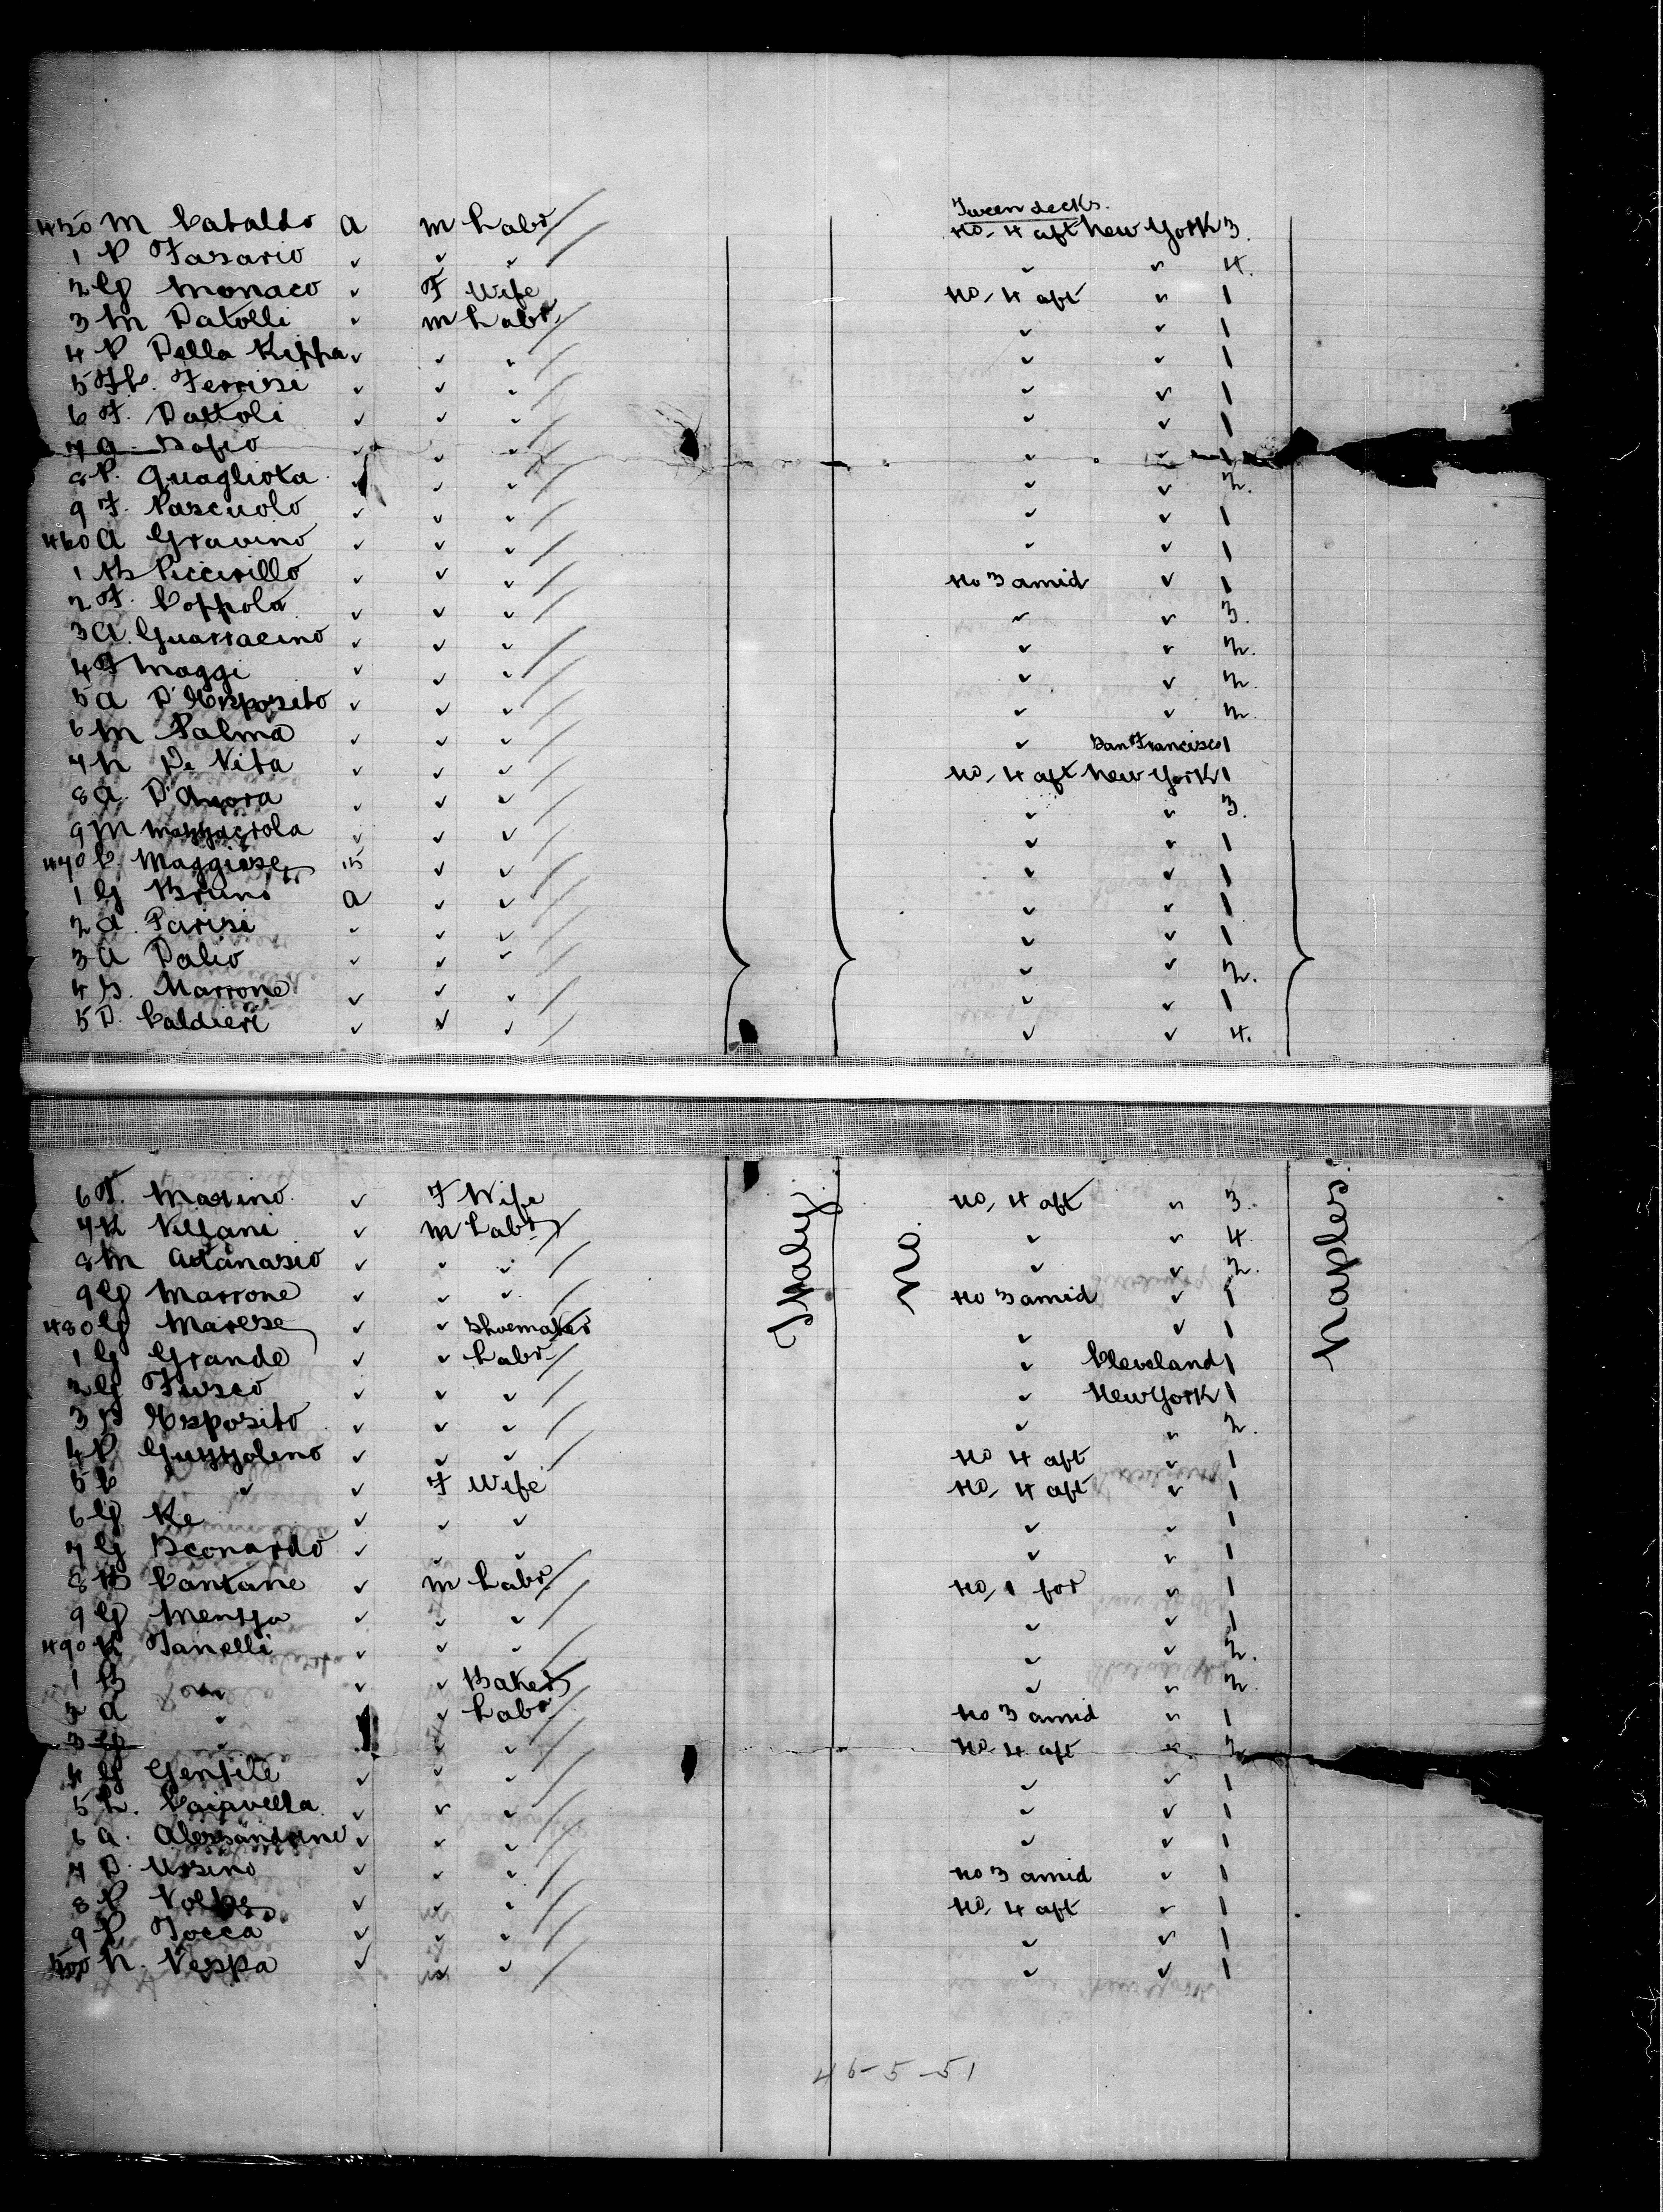 Tween decks.
450 M Cataldo a M Labr No. 4 aft New York 3.
1 P Fasario ✓ ✓ ✓ ✓ ✓ 4.
2 G Monaco ✓ F Wife No. 4 aft ✓ 1
3 M Datolli ✓ M Labr ✓ ✓ 1
4 P Della Rippa ✓ ✓ ✓ ✓ ✓ 1
5 F.P. Ferrisi ✓ ✓ ✓ ✓ ✓ 1
6 F. Dattoli ✓ ✓ ✓ ✓ ✓ 1
7 A Safio ✓ ✓ ✓ ✓ ✓ 1
8 P. Quagliota ✓ ✓ ✓ ✓ 2.
9 F. Pascuolo ✓ ✓ ✓ ✓ ✓ 1
460 A Gravino ✓ ✓ ✓ ✓ ✓ 1
1 B Piccirillo ✓ ✓ ✓ No 3 amid ✓ 1
2 F. Coppola ✓ ✓ ✓ ✓ ✓ 3.
3 A. Guarracino ✓ ✓ ✓ ✓ ✓ 2.
4 F Maggi ✓ ✓ ✓ ✓ ✓ 2.
5 A D'Esposito ✓ ✓ ✓ ✓ ✓ 2.
6 M Palma ✓ ✓ ✓ ✓ San Francisco 1
7 N De Vita ✓ ✓ ✓ No. 4 aft New York 1
8 A. D'Agora ✓ ✓ ✓ ✓ ✓ 3.
9 M Mazzacrola ✓ ✓ ✓ ✓ ✓ 1
470 C. Maggiore 15 ✓ ✓ ✓ ✓ 1
1 G Bruno a ✓ ✓ ✓ ✓ 1
2 A. Parisi ✓ ✓ ✓ ✓ ✓ 1
3 A Dalio ✓ ✓ ✓ ✓ ✓ 2.
4 S. Marrone ✓ ✓ ✓ ✓ ✓ 1
5 D. Caldieri ✓ ✓ ✓ ✓ ✓ 4.
6 F. Marino ✓ F Wife No. 4 aft ✓ 3.
7 R Villani ✓ M Labr ✓ ✓ 4
8 M Attanasio ✓ ✓ ✓ ✓ ✓ 2.
9 G Marrone ✓ ✓ ✓ No 3 amid ✓ 1
480 G Marese ✓ ✓ Shoemaker ✓ ✓ 1
1 G Grande ✓ ✓ Labr ✓ Cleveland 1
2 G Fusco ✓ ✓ ✓ ✓ New York 1
3 B Esposito ✓ ✓ ✓ ✓ ✓ 2.
4 P Guzzolino ✓ ✓ ✓ No 4 aft ✓ 1
5 C ✓ ✓ F Wife No. 4 aft ✓ 1
6 G Re ✓ ✓ ✓ ✓ ✓ 1
7 G Leonardo ✓ ✓ ✓ ✓ ✓ 1
8 B Cantane ✓ M Labr No. 1 for ✓ 1
9 G Menzza ✓ ✓ ✓ ✓ ✓ 1
490 R Ianelli ✓ ✓ ✓ ✓ ✓ 2.
1 B ✓ ✓ ✓ Baker ✓ ✓ 2.
2 A ✓ ✓ Labr No 3 amid ✓ 1
3 G ✓ ✓ ✓ No. 4 aft ✓ 2.
4 G Gentile ✓ ✓ ✓ ✓ ✓ 1
5 L. Caiavella ✓ ✓ ✓ ✓ ✓ 1
6 A. Alessandrino ✓ ✓ ✓ ✓ ✓ 1
7 D. Ursino ✓ ✓ ✓ No 3 amid ✓ 1
8 P Volpe ✓ ✓ ✓ No. 4 aft ✓ 1
9 P. Tocca ✓ ✓ ✓ ✓ ✓ 1
500 N. Vespa ✓ ✓ ✓ ✓ ✓ 1
Italy
No.
Naples.
46-5-51